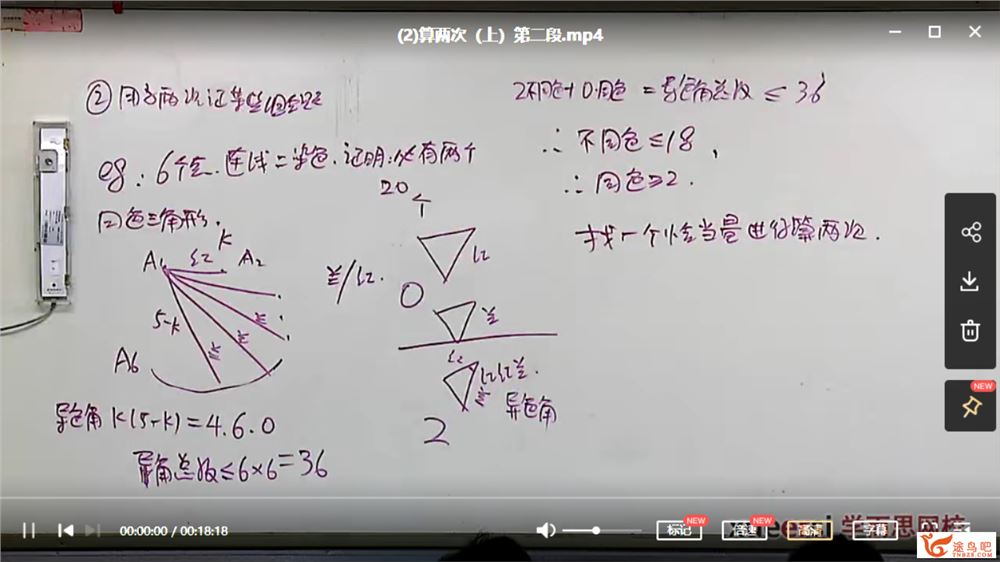 (2)算两次（上）第二段.mp4
② 用算两次证某些组合题
eg: 6个点.连线二染色.证明:必有两个
同色三角形.
20个
A1 红 K A2
5-K
蓝
蓝
蓝
A6
蓝/红.
红
0
蓝
红
红红蓝.
蓝
异色角
2
异色角 K(5-K)=4.6.0
异角总数≤6×6=36
2不同色+0.同色 = 异色角总数 ≤ 36
∴ 不同色≤18,
∴ 同色≥2.
找一个恰当量进行算两次.
NEW
00:00:00 / 00:18:18
标记 NEW
倍速 NEW
高清
字幕
学而思网校
途鸟吧
TNBZS.COM